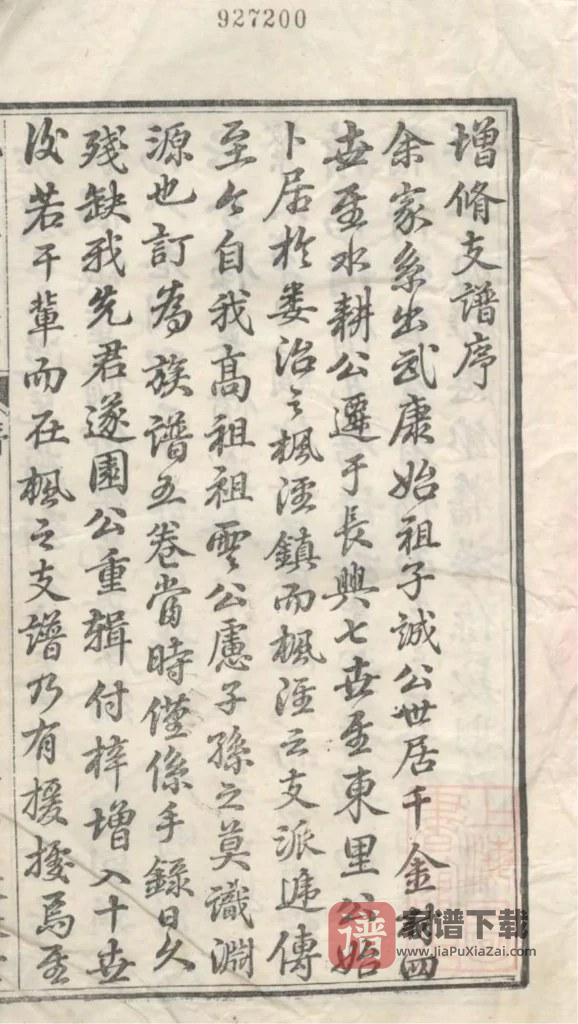 927200
增脩支譜序
余家系出武康始祖子誠公世居千金村四
世至水耕公遷于長興七世至東里公始
卜居於婁治之楓涇鎮而楓涇之支派遞傳
至今自我高祖祖雲公慮子孫之莫識淵
源也訂為族譜五卷當時僅係手錄日久
殘缺我先君遂園公重輯付梓增入十世
後若干輩而在楓之支譜乃有援據焉至
譜
家谱下载
www.JiaPuXiaZai.com